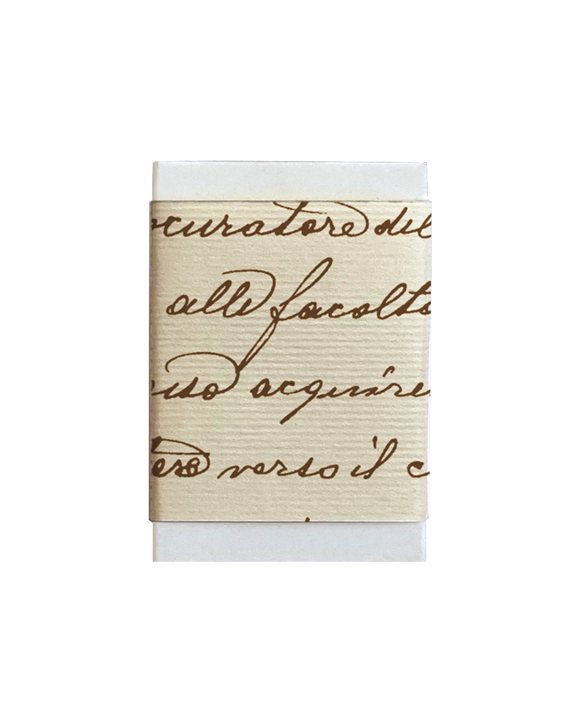 ocuratore del
alle facolto
uso acquire
ere verso il c